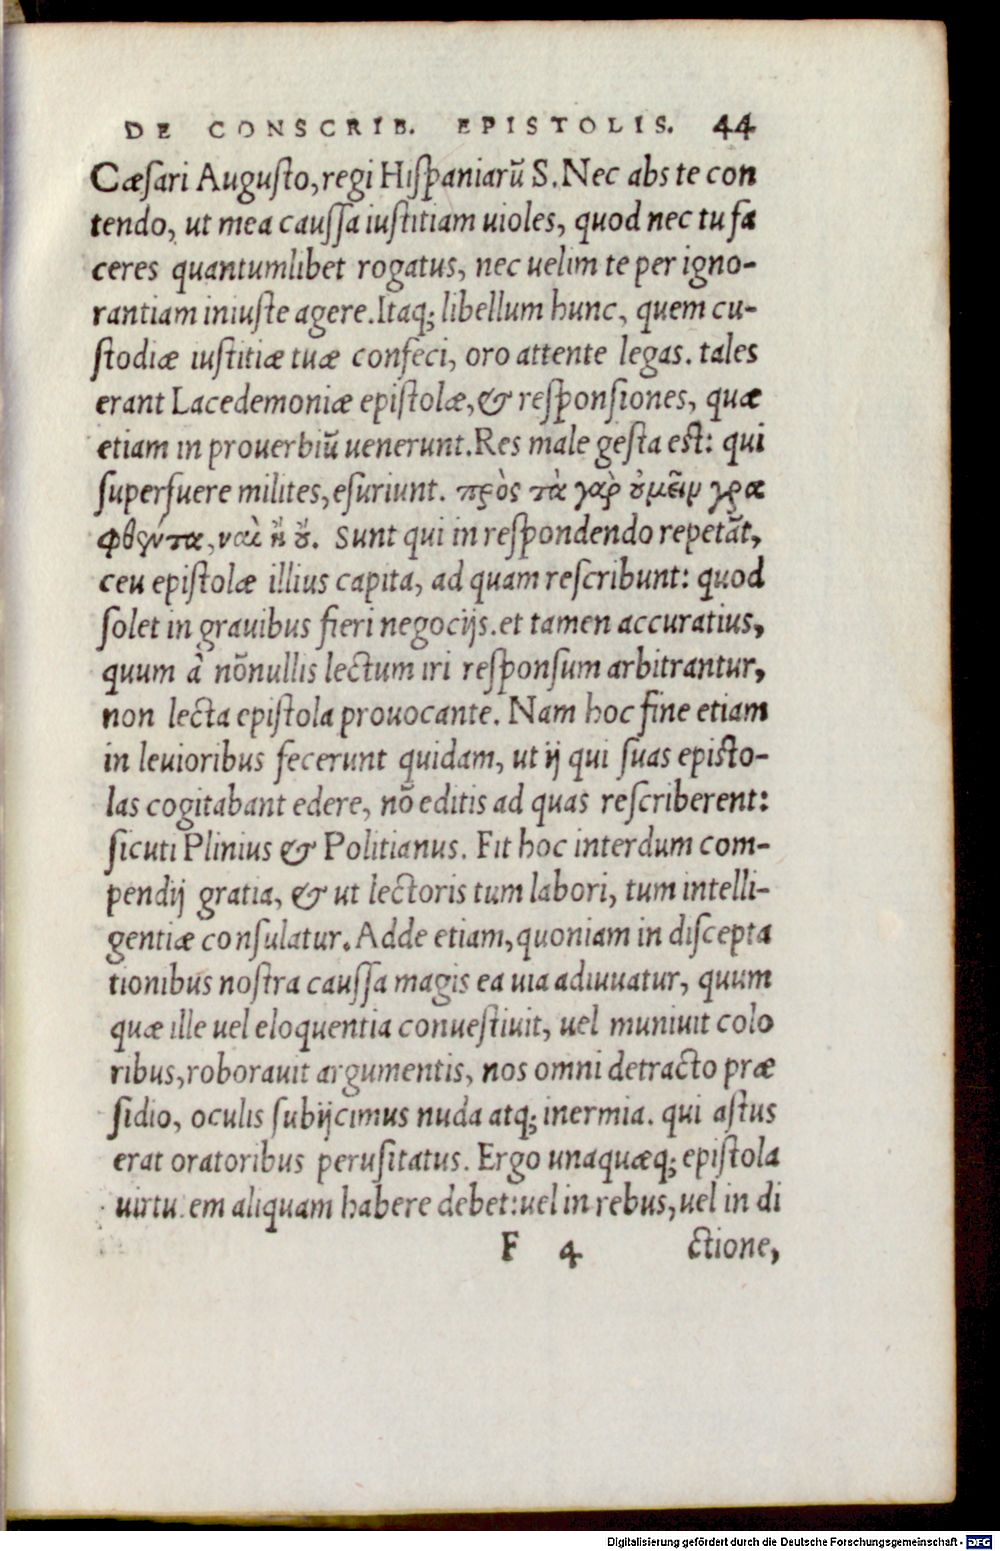 DE CONSCRIB. EPISTOLIS. 44
Cæſari Auguſto, regi Hiſpaniarū S. Nec abs te con
tendo, ut mea cauſſa iuſtitiam uioles, quod nec tu fa
ceres quantumlibet rogatus, nec uelim te per igno-
rantiam iniuſte agere. Itaq; libellum hunc, quem cu-
ſtodiæ iuſtitiæ tuæ confeci, oro attente legas. tales
erant Lacedemoniæ epiſtolæ, & reſponſiones, quæ
etiam in prouerbiū uenerunt. Res male geſta est: qui
ſuperfuere milites, eſuriunt. πρὸς τὰ γὰρ ὑμεῖν γρα
φθέντα, ναὶ ἢ οὔ. Sunt qui in reſpondendo repetāt,
ceu epiſtolæ illius capita, ad quam reſcribunt: quod
ſolet in grauibus fieri negocijs. et tamen accuratius,
quum à nōnullis lectum iri reſponſum arbitrantur,
non lecta epiſtola prouocante. Nam hoc fine etiam
in leuioribus fecerunt quidam, ut ij qui ſuas episto-
las cogitabant edere, nō editis ad quas reſcriberent:
ſicuti Plinius & Politianus. Fit hoc interdum com-
pendij gratia, & ut lectoris tum labori, tum intelli-
gentiæ conſulatur. Adde etiam, quoniam in diſcepta
tionibus noſtra cauſſa magis ea uia adiuuatur, quum
quæ ille uel eloquentia conueſtiuit, uel muniuit colo
ribus, roborauit argumentis, nos omni detracto præ
ſidio, oculis ſubijcimus nuda atq; inermia. qui aſtus
erat oratoribus peruſitatus. Ergo unaquæq; epiſtola
uirtu em aliquam habere debet: uel in rebus, uel in di
F 4 ctione,
Digitalisierung gefördert durch die Deutsche Forschungsgemeinschaft - DFG